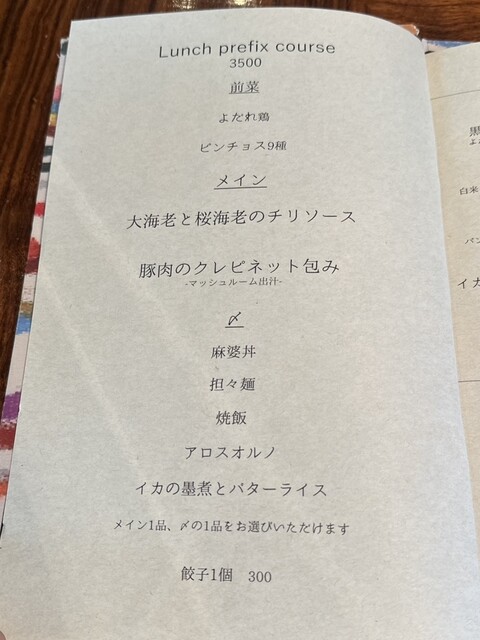 Lunch prefix course
3500
前菜
よだれ鶏
ピンチョス9種
メイン
大海老と桜海老のチリソース
豚肉のクレピネット包み
-マッシュルーム出汁-
〆
麻婆丼
担々麺
焼飯
アロスオルノ
イカの墨煮とバターライス
メイン1品、〆の1品をお選びいただけます
餃子1個 300
黒
よ
白米
パン
イカ